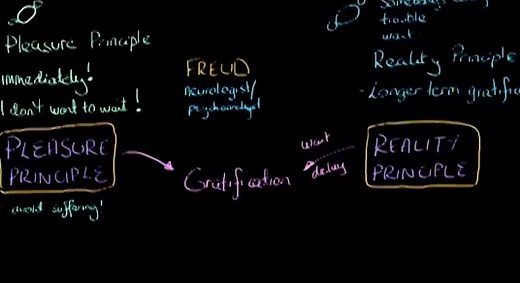 Pleasure Principle
immediately!
I don't want to wait!
PLEASURE
PRINCIPLE
avoid suffering!
FREUD
neurologist/
psychoanalyst
Gratification
wait
delay
trouble
want
Reality Principle
- Longer term gratific
REALITY
PRINCIPLE